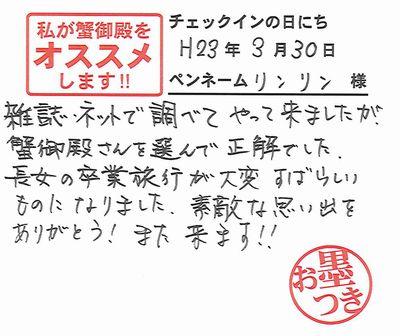 私が蟹御殿を
オススメ
します!!
チェックインの日にち
H23年3月30日
ペンネーム リンリン 様
雑誌・ネットで調べてやって来ましたが
蟹御殿さんを選んで正解でした。
長女の卒業旅行が大変すばらしい
ものになりました。素敵な思い出を
ありがとう！また来ます!!
お墨つき